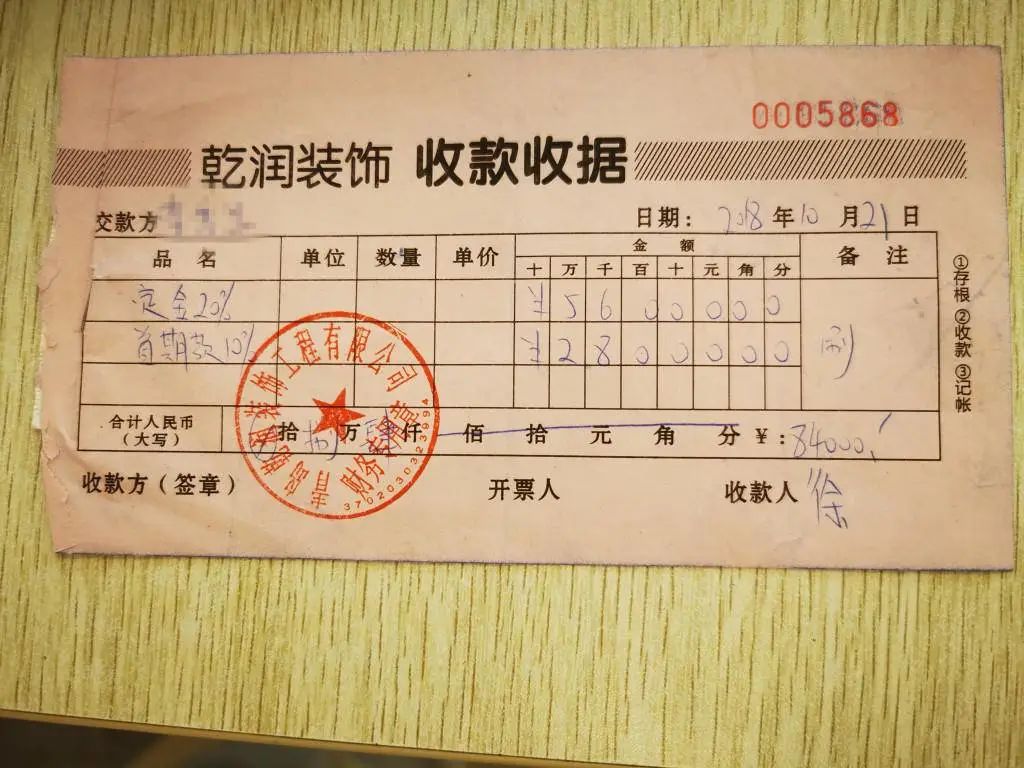 0005868
乾润装饰 收款收据
交款方
日期: 2018 年 10 月 21 日
品名 单位 数量 单价 金额 备注
十 万 千 百 十 元 角 分
定金20% ¥ 5 6 0 0 0 0 0
首期款10% ¥ 2 8 0 0 0 0 0 刷
合计人民币(大写) 拾 捌 万 肆 仟 佰 拾 元 角 分 ¥: 84000
收款方(签章) 开票人 收款人 徐
①存根 ②收款 ③记帐
装饰工程有限公司
财务专用章
3702030323994